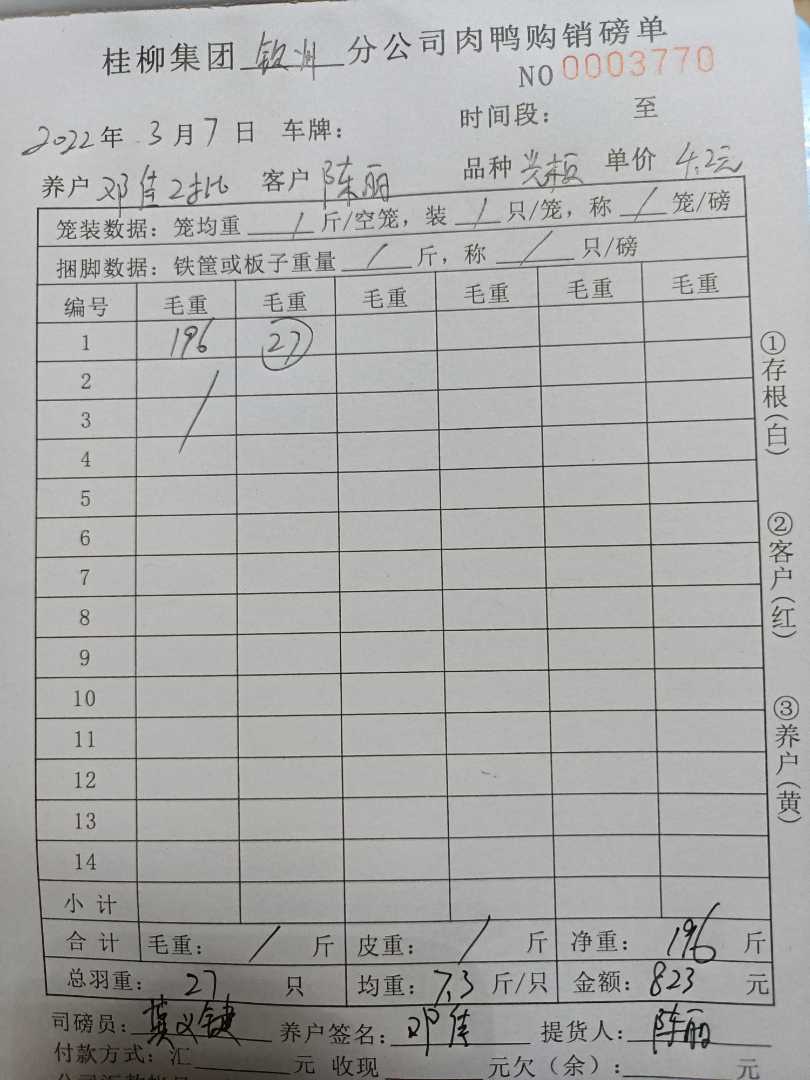 桂柳集团 钦州 分公司肉鸭购销磅单
NO 0003770
2022年 3月7日 车牌: 时间段: 至
养户 邓佳2批 客户 陈丽 品种 单价 4.2元
笼装数据: 笼均重 / 斤/空笼, 装 / 只/笼, 称 / 笼/磅
捆脚数据: 铁筐或板子重量 / 斤, 称 / 只/磅
编号 毛重 毛重 毛重 毛重 毛重 毛重
1 196 27
2 /
3
4
5
6
7
8
9
10
11
12
13
14
小计
合计 毛重: / 斤 皮重: / 斤 净重: 196 斤
总羽重: 27 只 均重: 7.3 斤/只 金额: 823 元
司磅员: 养户签名: 邓佳 提货人: 陈丽
付款方式: 汇 元 收现 元欠(余): 元
①存根(白)
②客户(红)
③养户(黄)